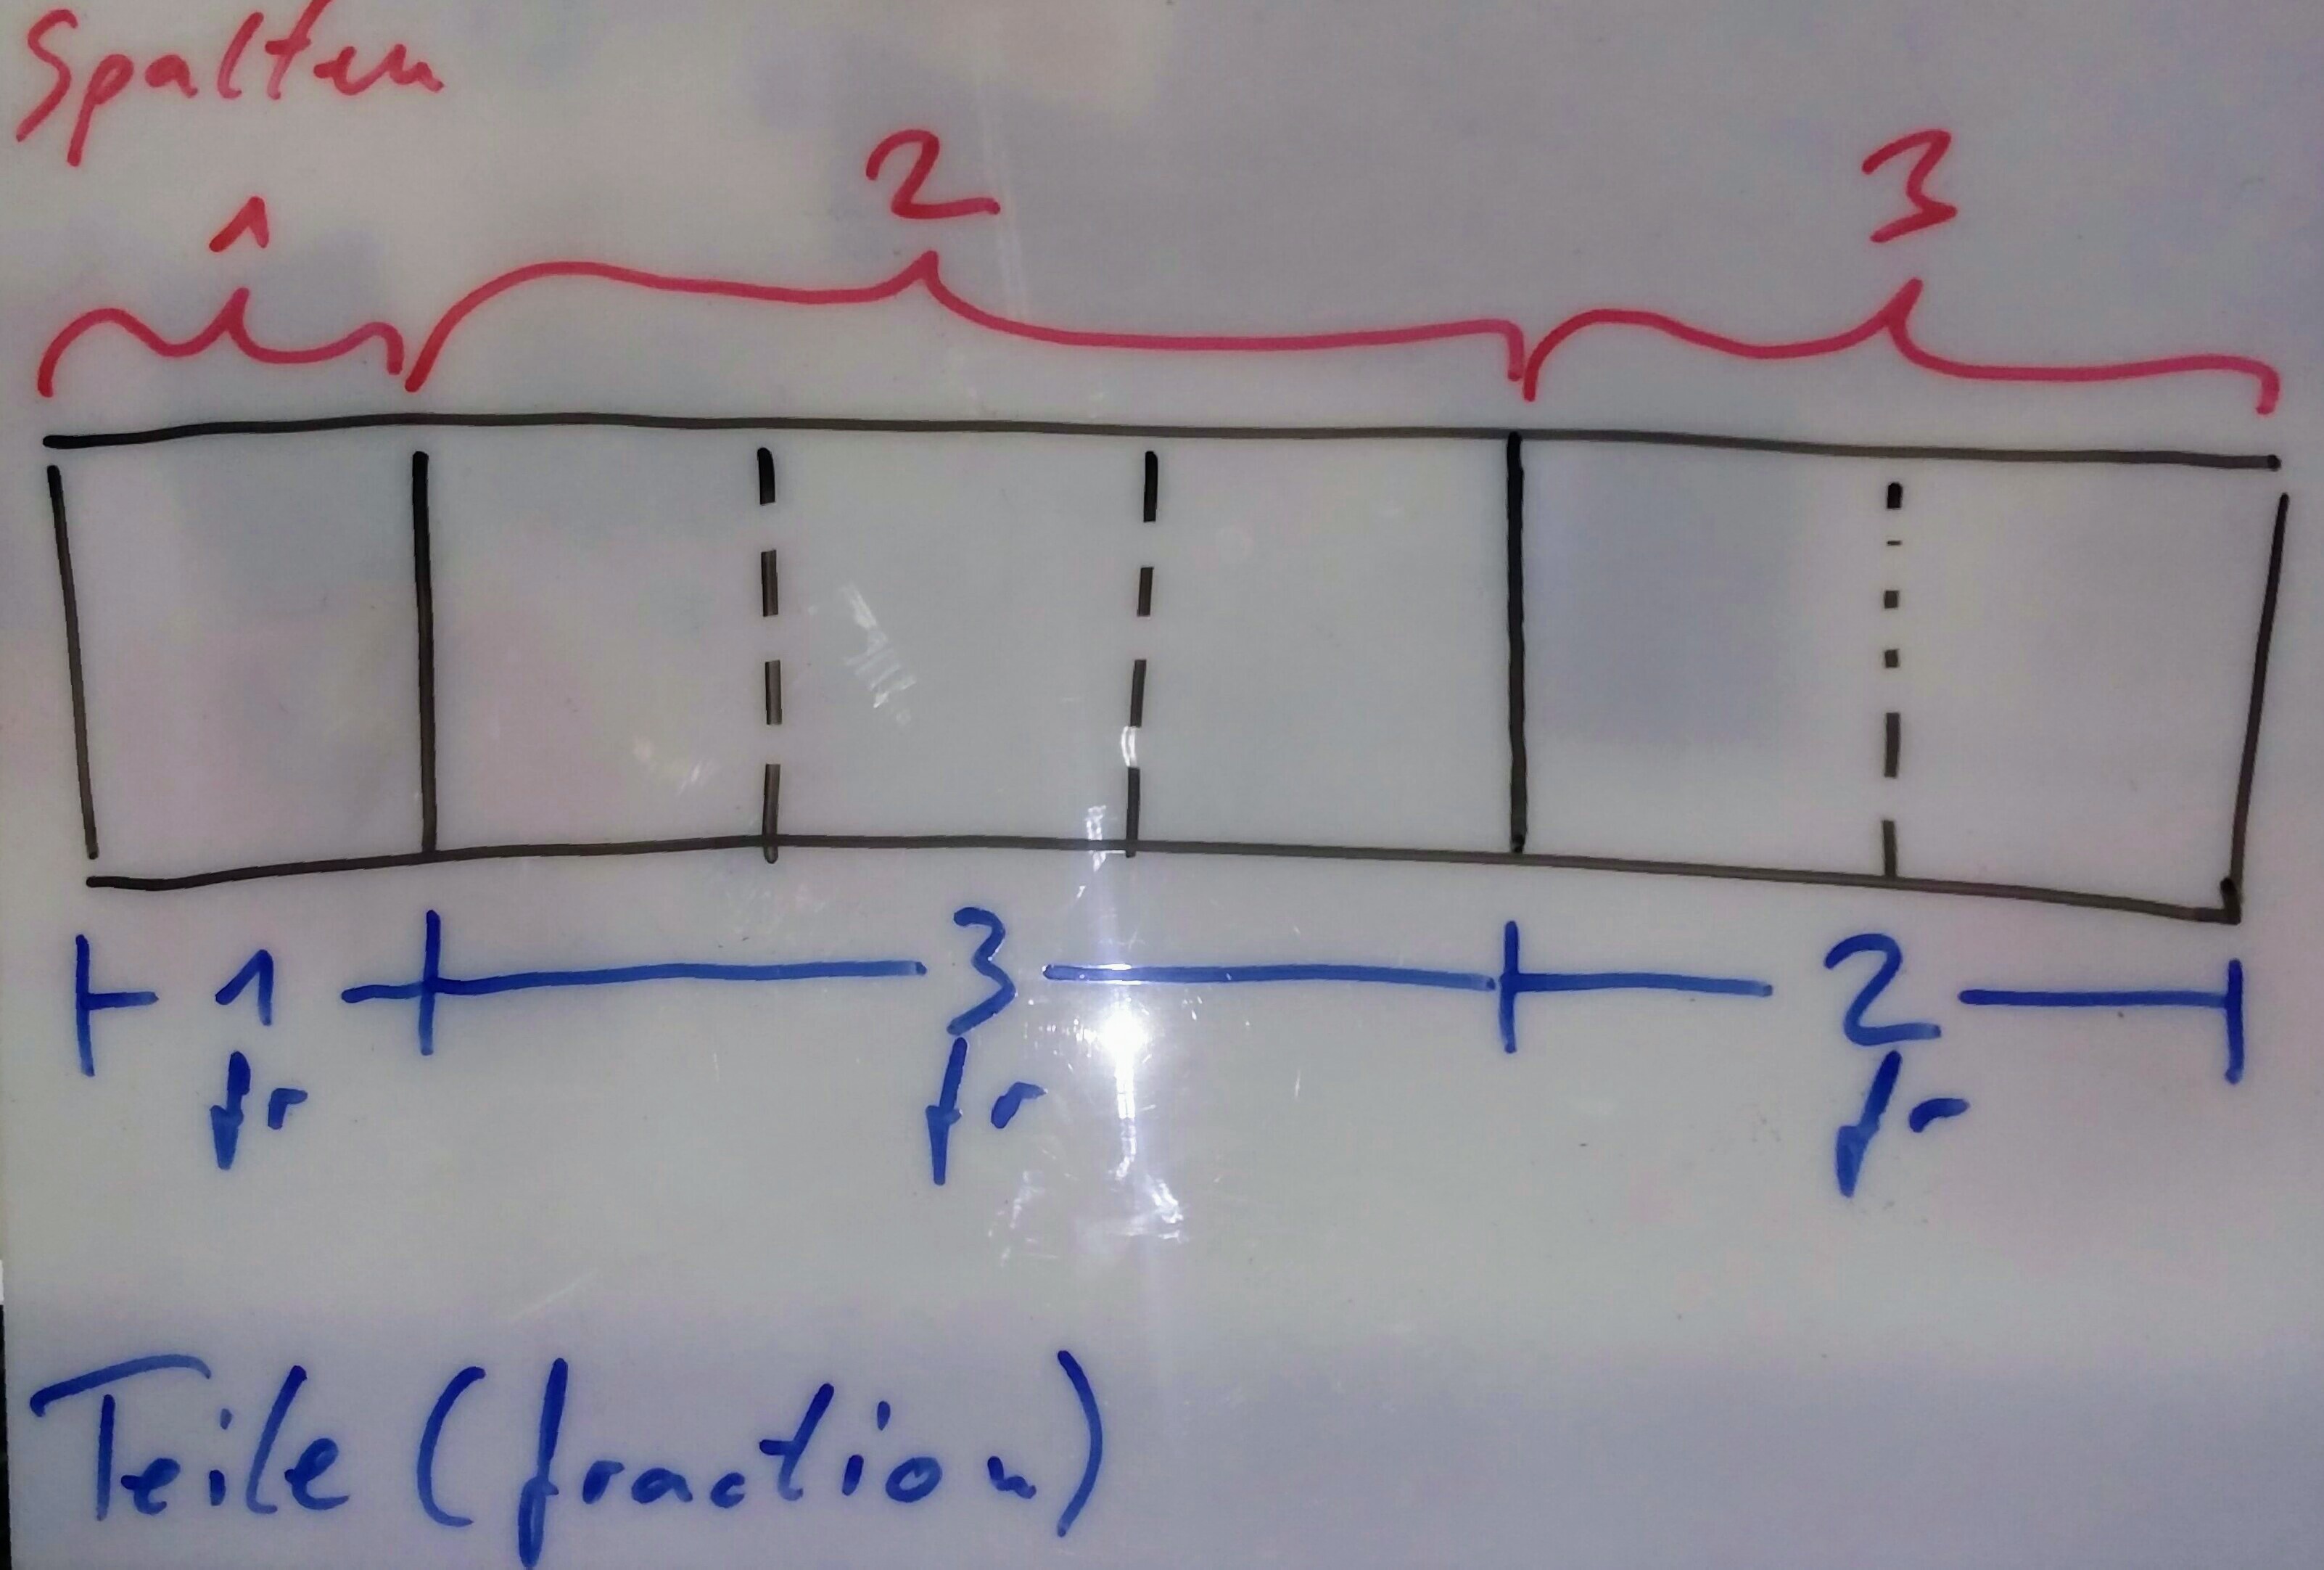 Spalten
1 2 3
1 3 2
fr fr fr
Teile (fraction)